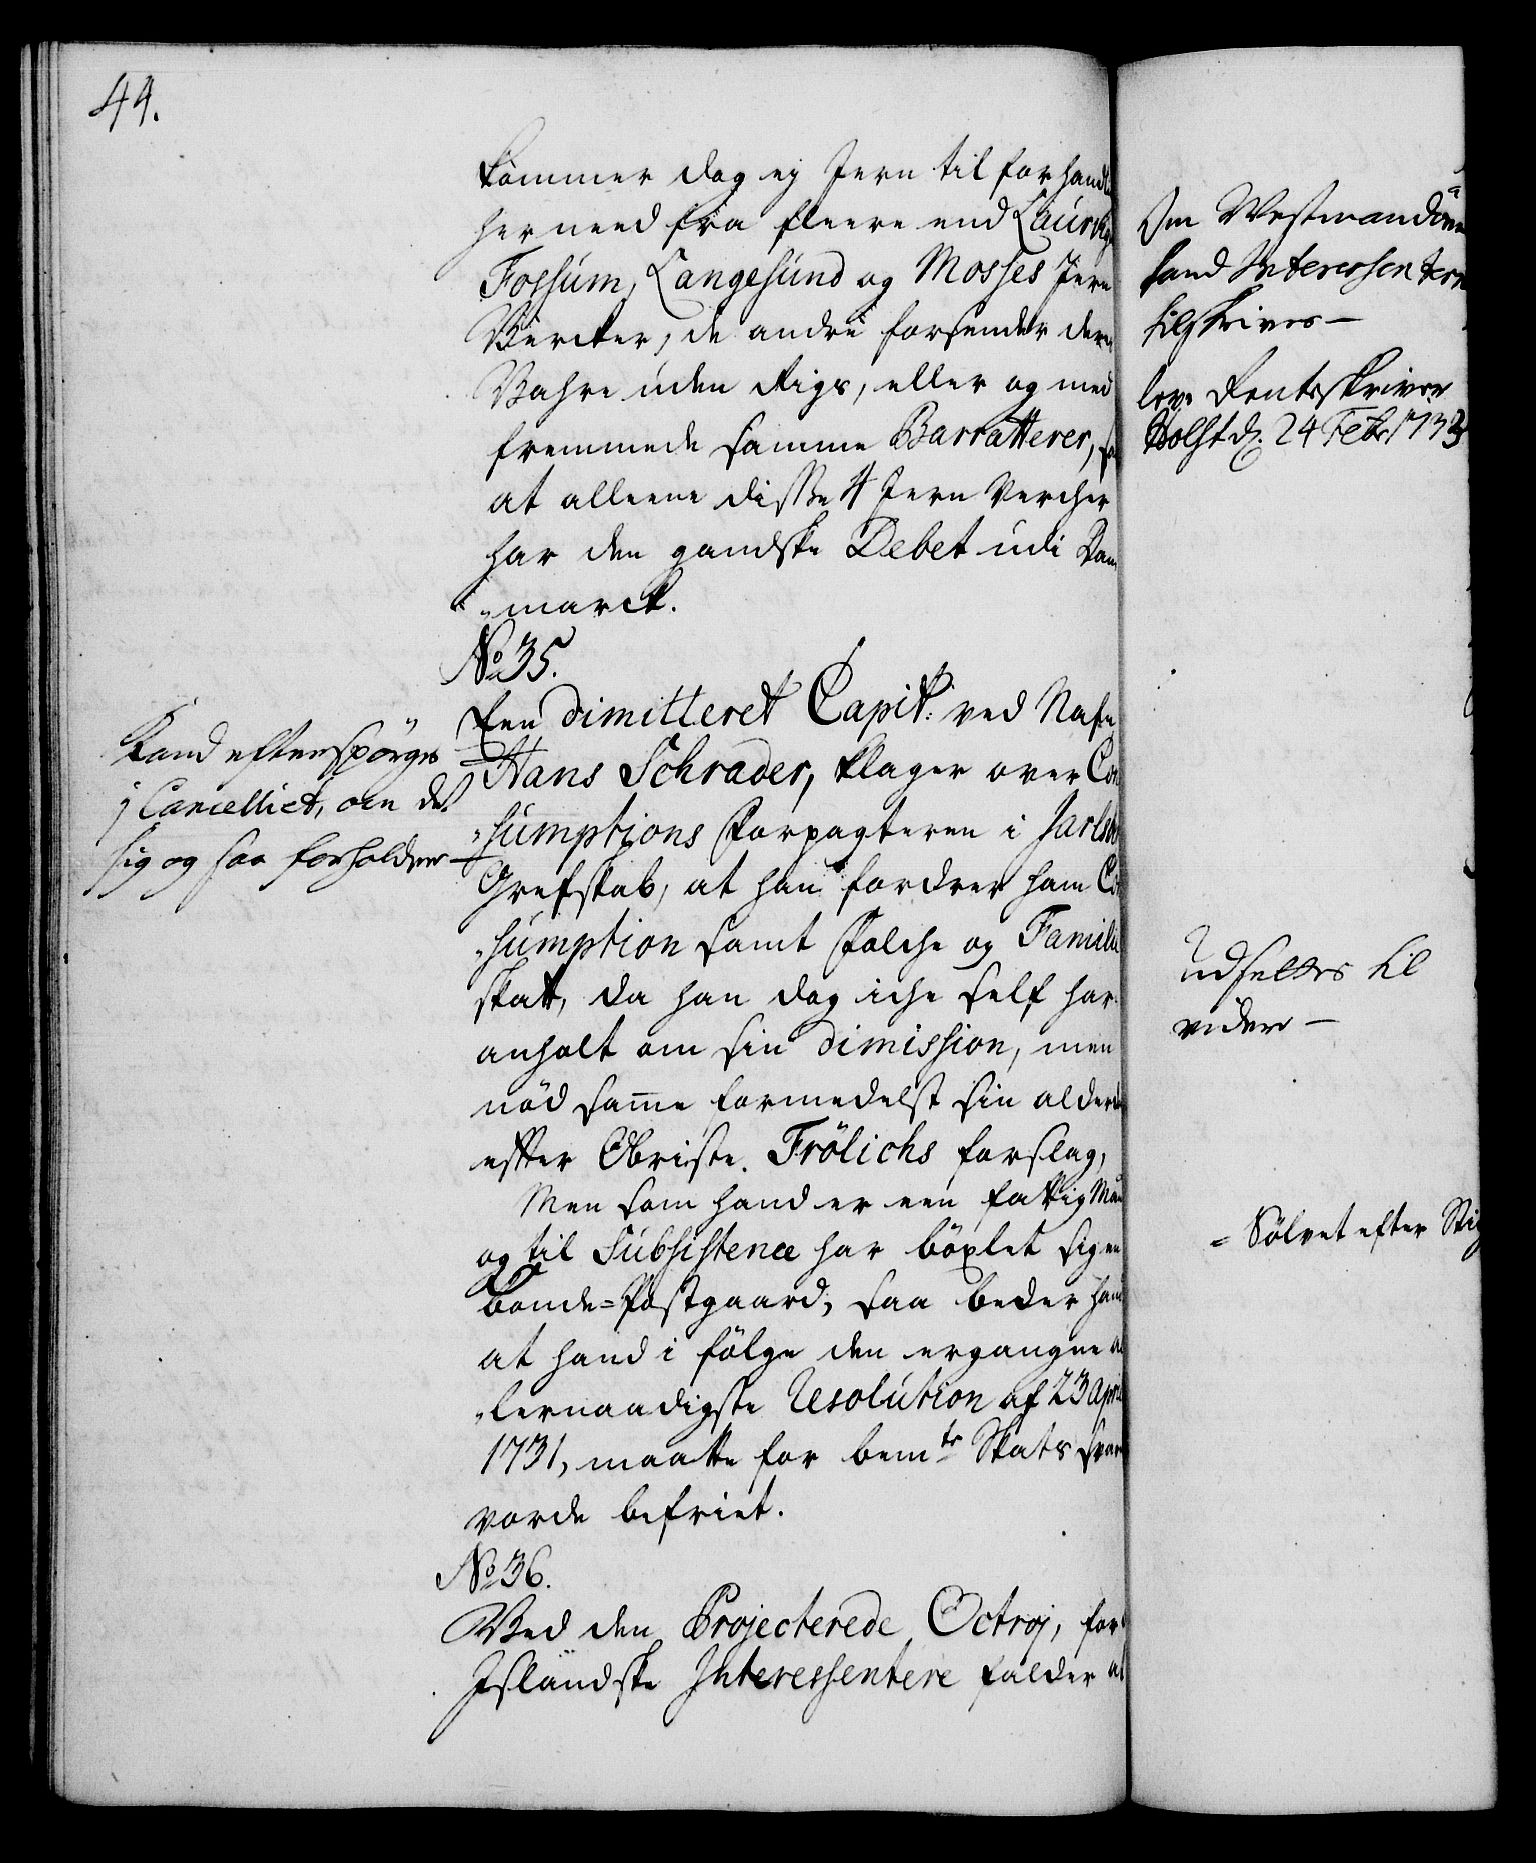 44.
kommer dog ej Jern til forhand
herneed fra fleere end Laurvigs
Fossum, Langesund og Mosses Jern
Vercker, de andre forsender deres
Vahre uden Rigs, eller og med
fremmede samme Barratterer, saa
at alleene disse 4 Jern Vercher
har den gandske Debet udi Dan
-marck.
No 35.
Een dimitteret Capit: ved Nafn
Hans Schrader, klager over Con
-sumptions Forpagteren i Jarlsb
Grefskab, at han fordrer ham Con
-sumption samt Folche og Familie
skatt, da han dog iche self har
anholt om sin dimission, men
nød samme formedelst sin alder
efter Obriste Frölichs forslag,
Men som hand er een fattig Man
og til Subsistence har böxlet sig en
Bonde-Postgaard, saa beder hand
at hand i fölge den ergangne al
-lernaadigste Resolution af 23 April
1731, maatte for bemte Skats svar
vorde befriet.
No 36.
Ved den Projecterede Octroj, for
Islandske Interessentere falder at
Kand efterspörges
i Cancelliet, om det
sig og saa forholder
Om Westmandöen
kand Interessentern
tilskrives
lev. Rentskriver
Holst d. 24 Febr 1733
Udsettes til
videre
= Sölvet efter